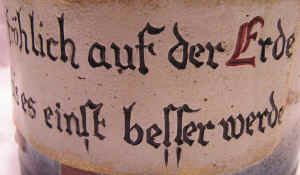 röhlich auf der Erde
ie es einſt beſſer werde